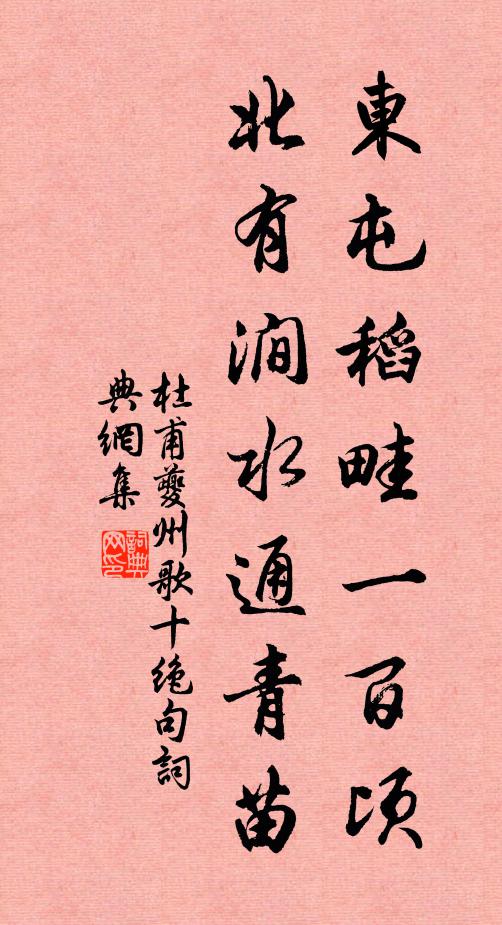 東屯稻畦一百頃
北有澗水通青苗
杜甫夔州歌十絕句詞
典網集
詞典
网印